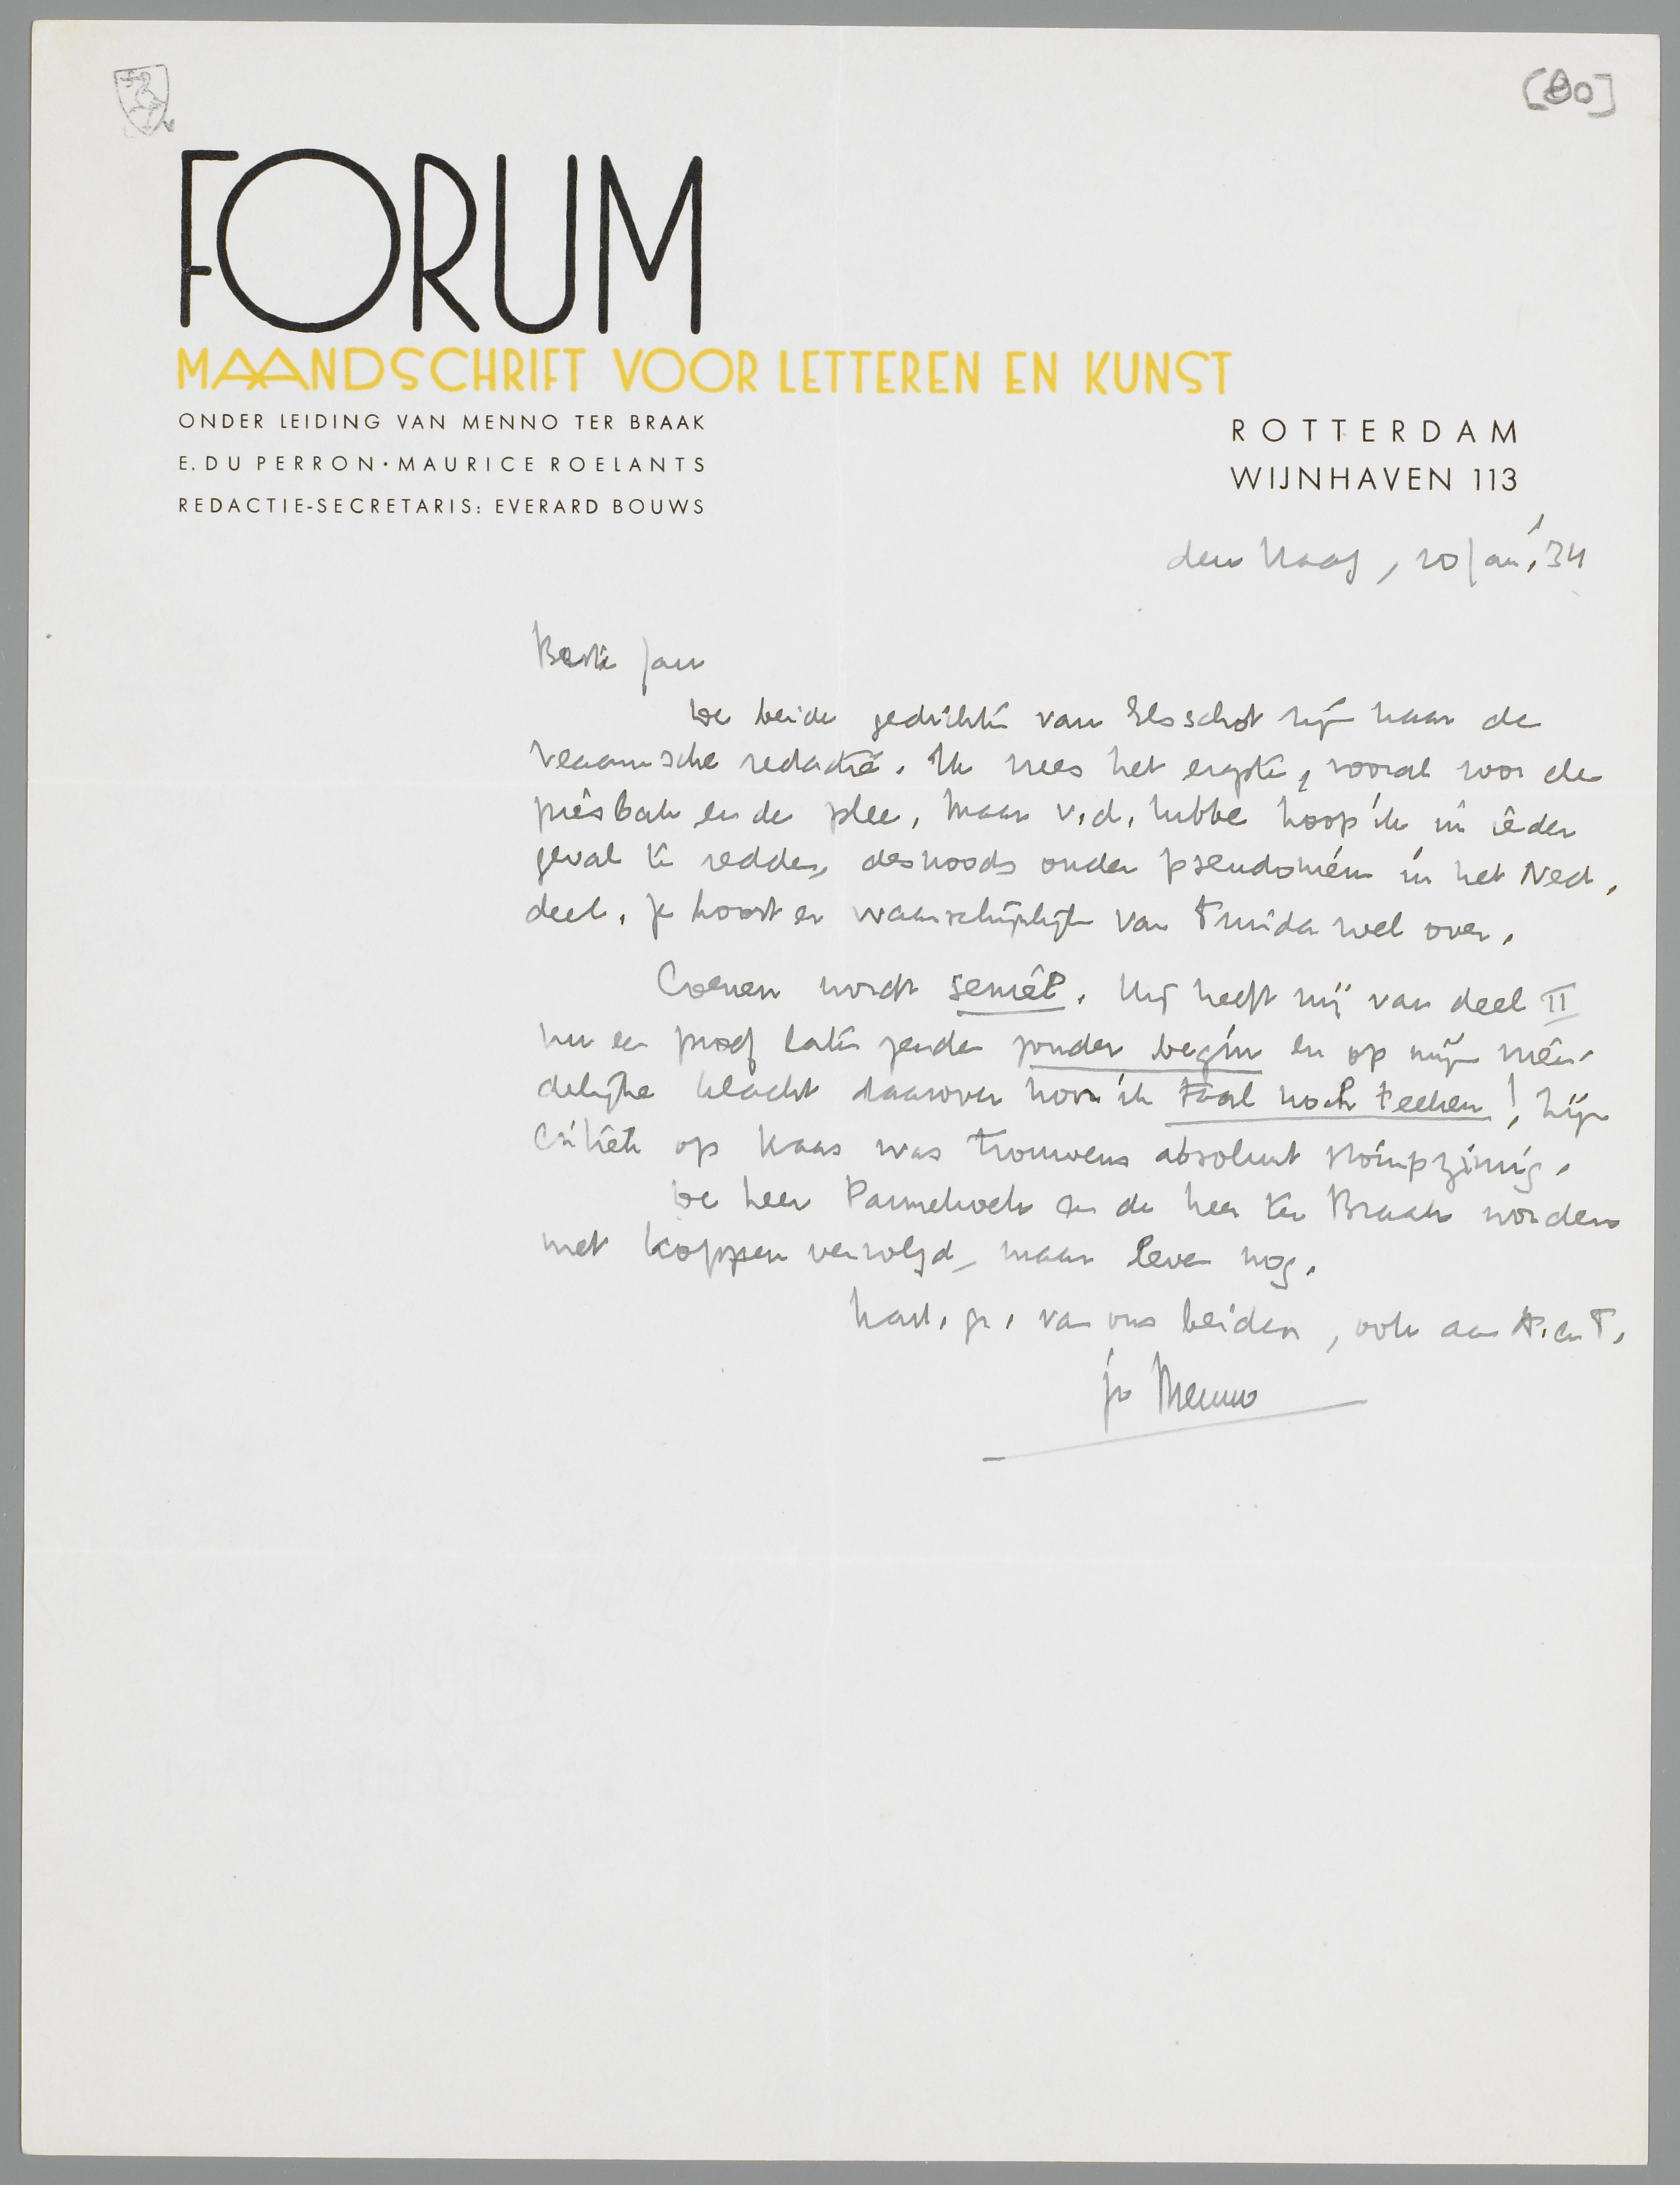 [80]
FORUM
MAANDSCHRIFT VOOR LETTEREN EN KUNST
ONDER LEIDING VAN MENNO TER BRAAK
E. DU PERRON · MAURICE ROELANTS
REDACTIE-SECRETARIS: EVERARD BOUWS
ROTTERDAM
WIJNHAVEN 113
den Haag, 20 Jan. '34
Beste Jan
De beide gedichten van Elsschot zijn naar de
Vlaamsche redactie. Ik vrees het ergste, vooral voor de
pisbak en de plee, maar v.d. Lubbe hoop ik in ieder
geval te redden, desnoods onder pseudoniem in het Ned.
deel. Je hoort er waarschijnlijk van Truida wel over.
Coenen wordt seniel. Hij heeft mij van deel II
nu een proef laten zenden zonder begin en op mijn vrien-
delijke klacht daarover hoor ik taal noch teeken! Zijn
critiek op Kaas was trouwens absoluut stompzinnig.
De heer Pannekoek en de heer ter Braak worden
met koppen vervolgd, maar leven nog.
Hart. gr. van ons beiden, ook aan A. en T.
je Menno